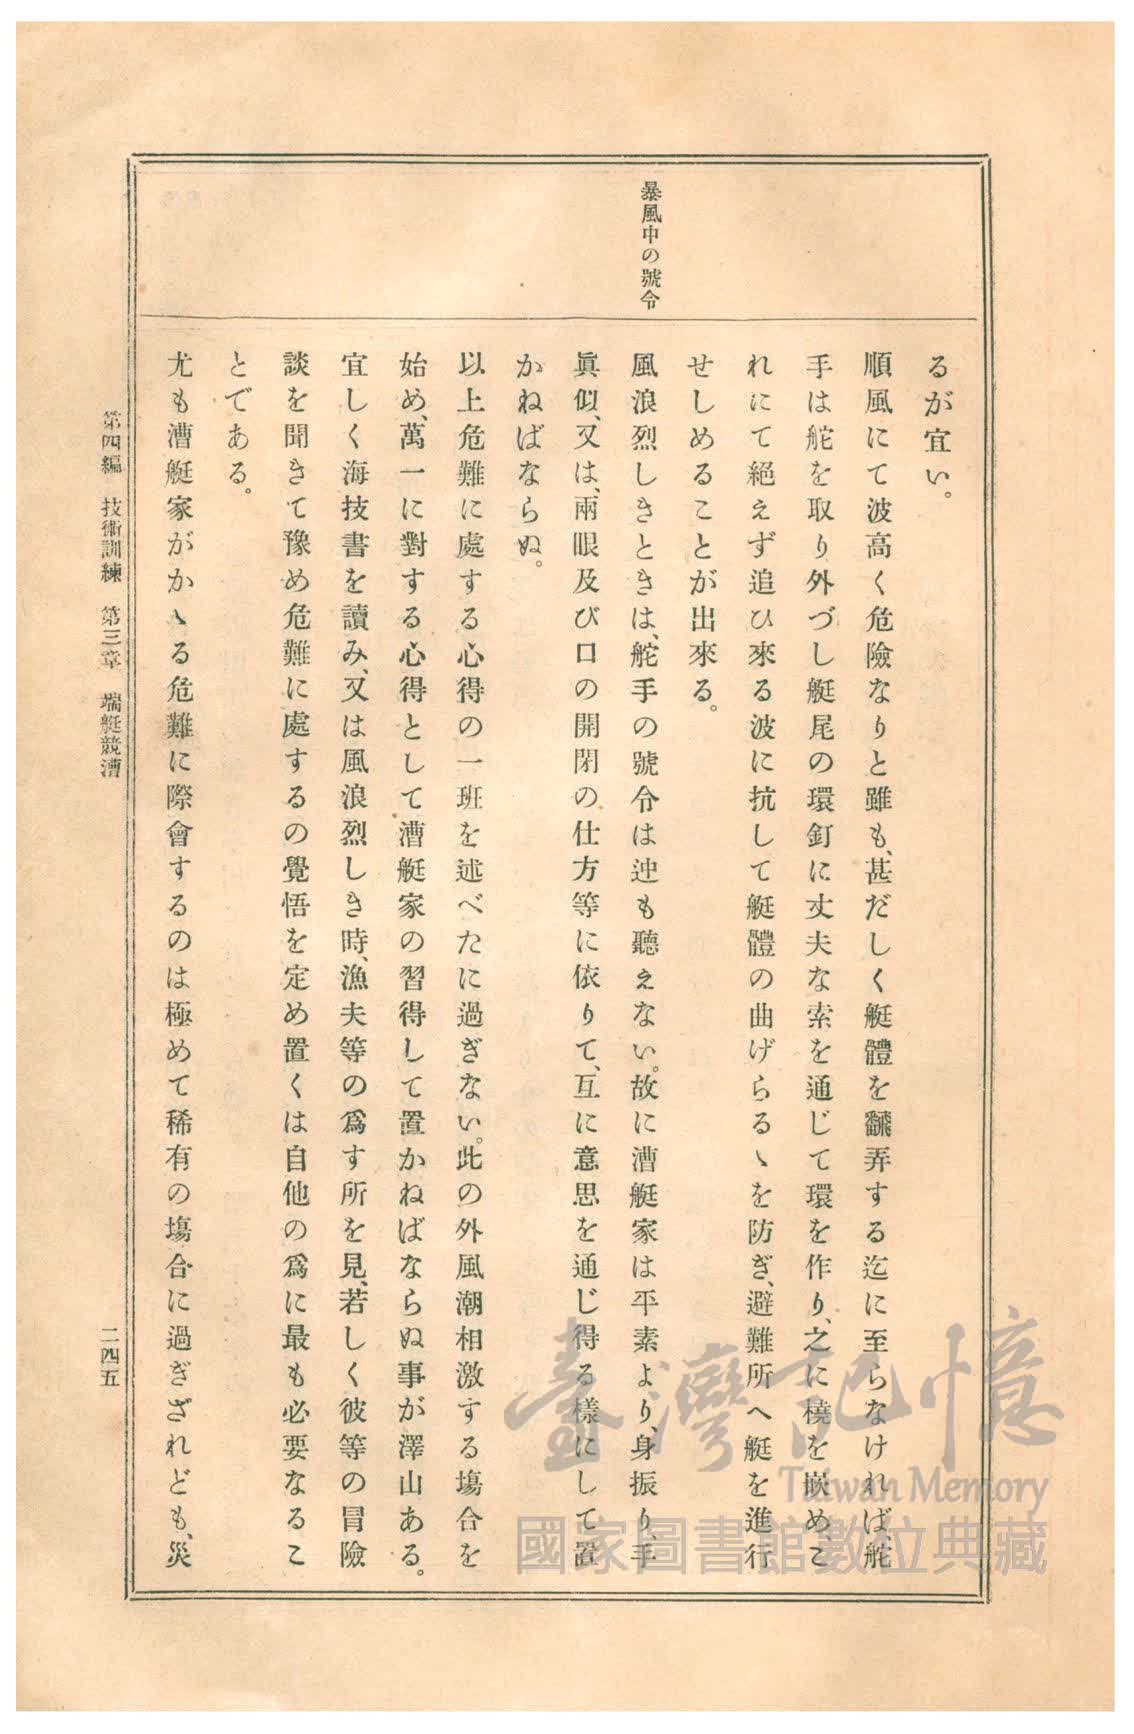 暴風中の號令
るが宜い。
順風にて波高く危險なりと雖も、甚だしく艇體を飜弄する迄に至らなければ、舵
手は舵を取り外づし艇尾の環釘に丈夫な索を通じて環を作り、之に橈を嵌め、こ
れにて絕えず追ひ來る波に抗して艇體の曲げらるゝを防ぎ、避難所へ艇を進行
せしめることが出來る。
風浪烈しきときは、舵手の號令は迚も聽えない。故に漕艇家は平素より、身振り、手
眞似、又は、兩眼及び口の開閉の仕方等に依りて、互に意思を通じ得る樣にして置
かねばならぬ。
以上危難に處する心得の一班を述べたに過ぎない。此の外風潮相激する塲合を
始め、萬一に對する心得として漕艇家の習得して置かねばならぬ事が澤山ある。
宜しく海技書を讀み、又は風浪烈しき時、漁夫等の爲す所を見、若しく彼等の冒險
談を聞きて豫め危難に處するの覺悟を定め置くは自他の爲に最も必要なるこ
とである。
尤も漕艇家がかゝる危難に際會するのは極めて稀有の塲合に過ぎざれども、災
第四編 技術訓練 第三章 端艇競漕
二四五
臺灣記憶
Taiwan Memory
國家圖書館數位典藏